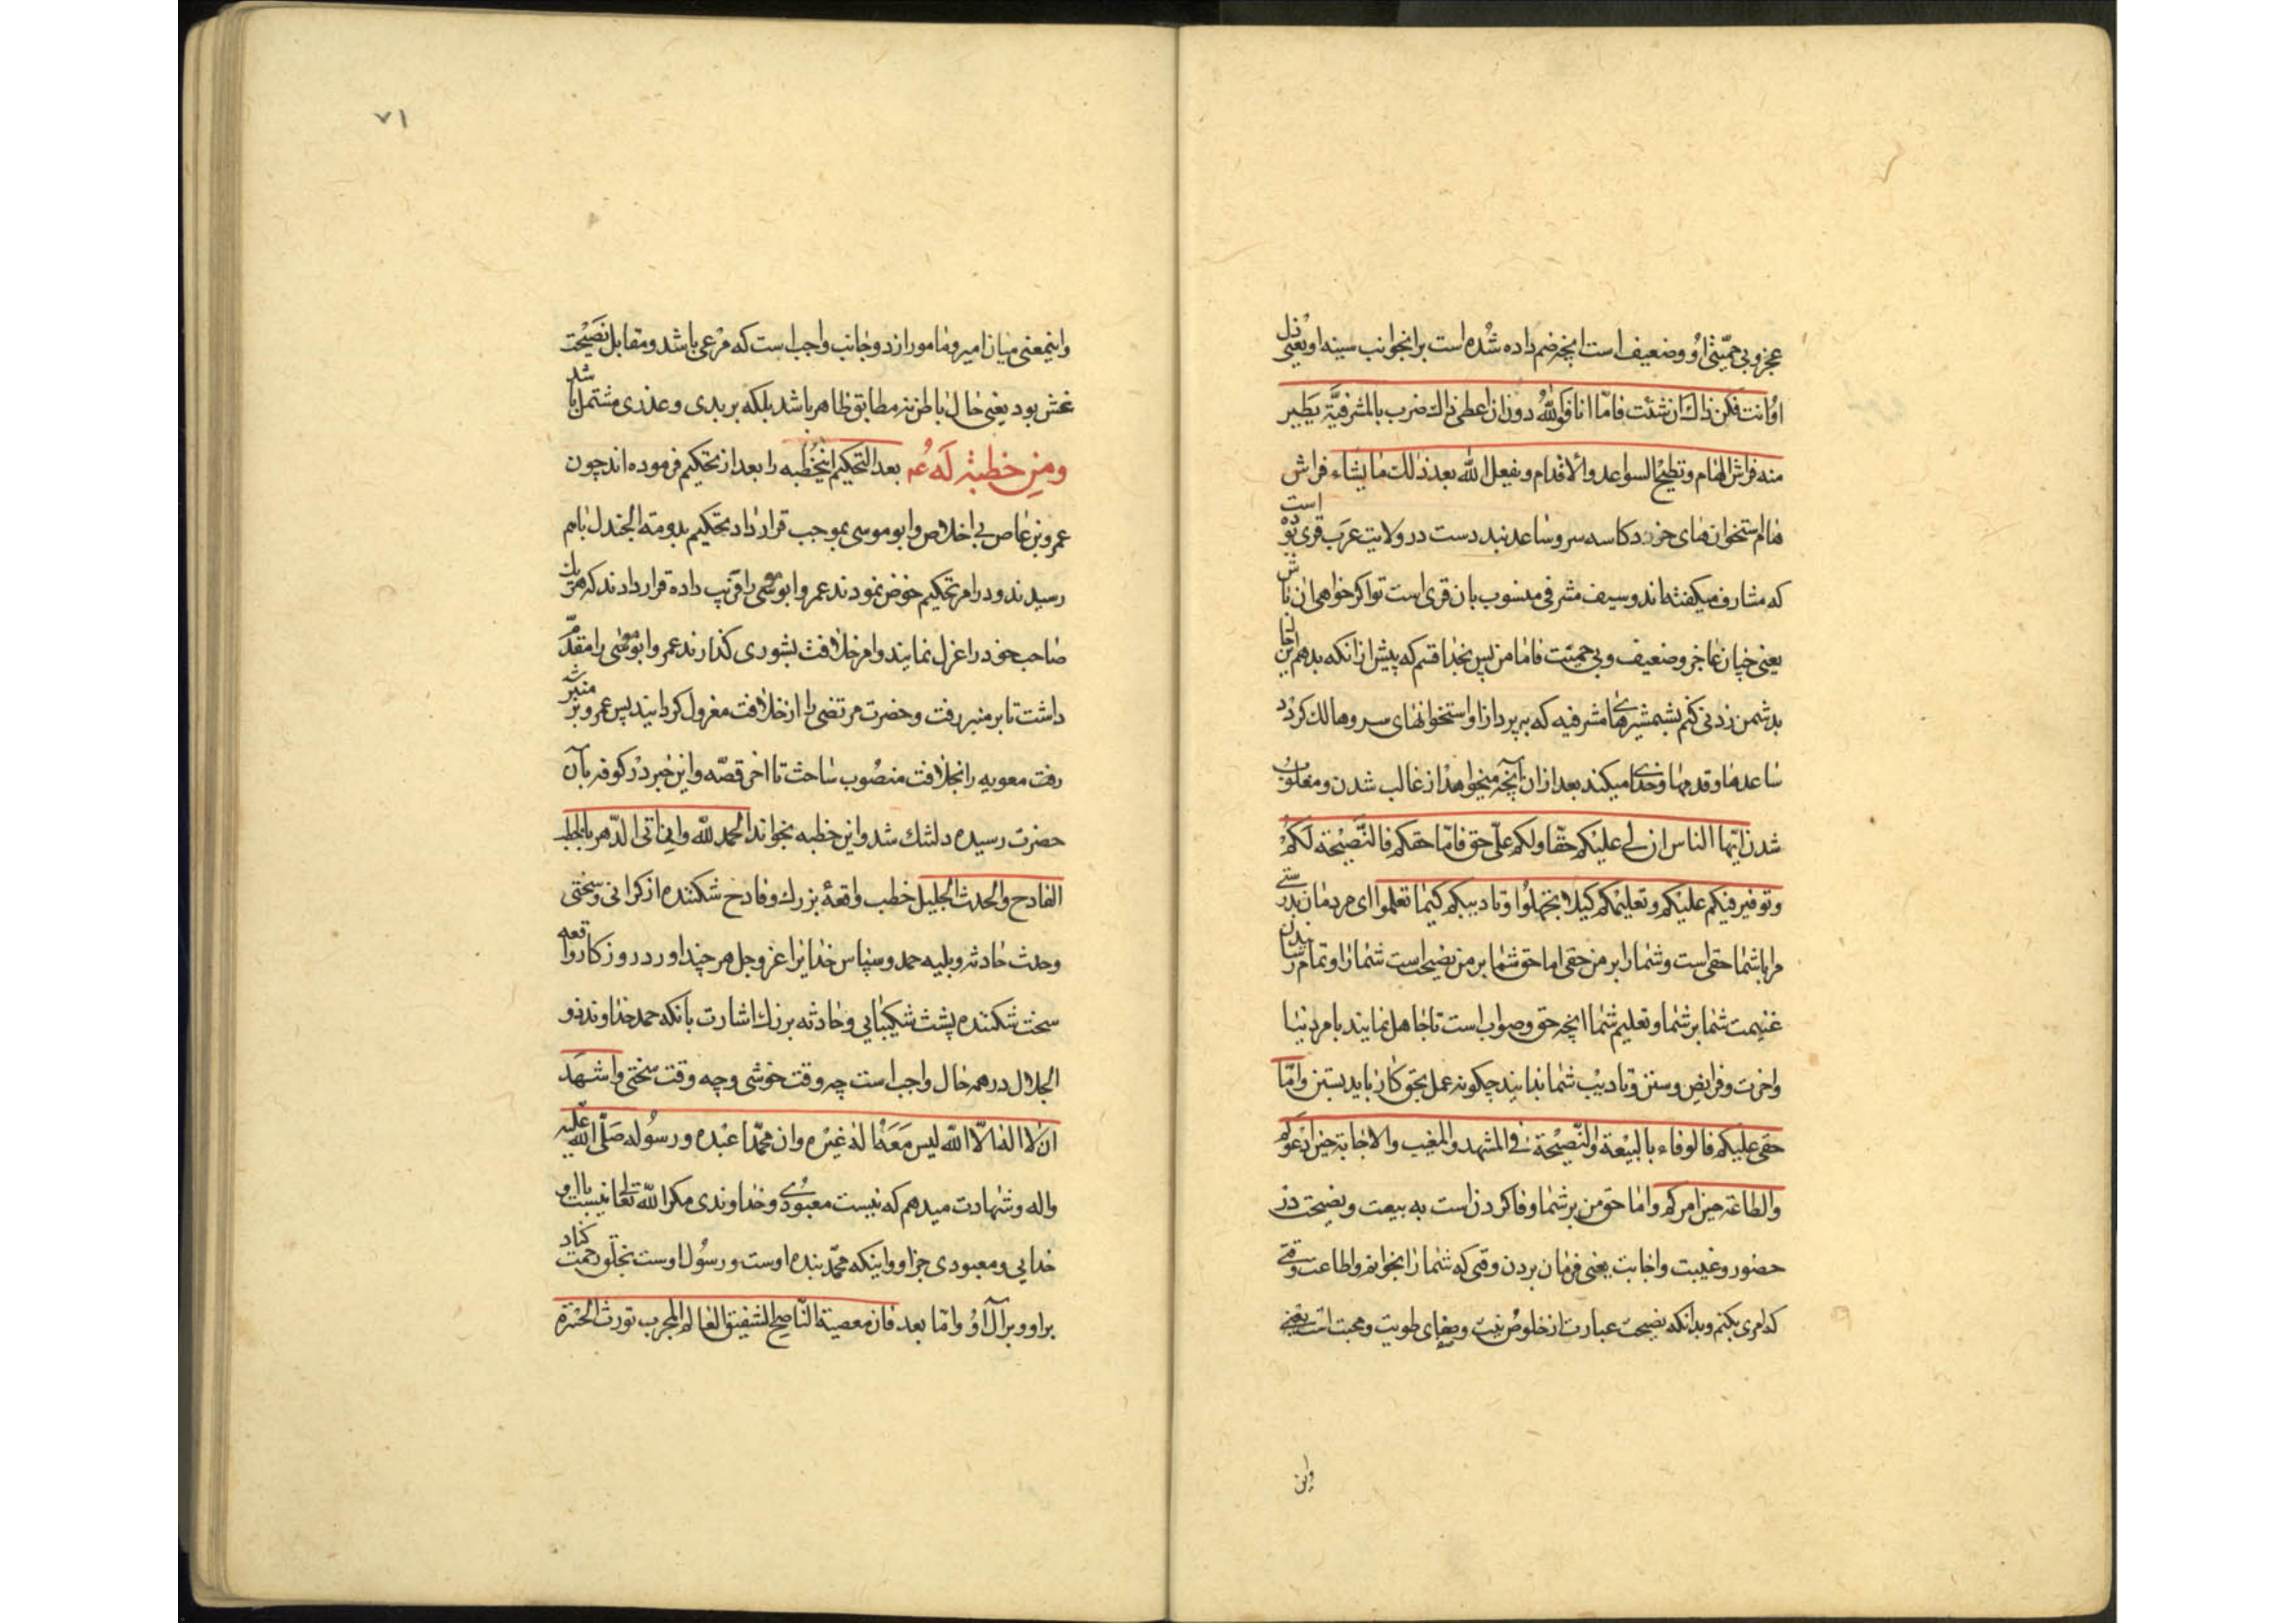 عجز و بی حمیّتی او و ضعیف است انچه ضم داده شده است بر انجوانب سینه او یعنی دل
او انت فکن ذاك ان شئت فامّا انا فوالله دون ان اعطی ذلك ضرب بالمشرفیّة یَطیر
منه فراش الهام و تطیح السواعد والاقدام و یفعل الله بعد ذلك ما یشاء فراش
هام استخوان های خورد کاسه سر و ساعد بند دست در ولایت عرب قری بوده است
که مشارف میکفته اند و سیف مشرفی منسوب بان قری است تو اکر خواهی ان باش
یعنی چنان عاجز و ضعیف و بی حمیّت فاما من پس بخدا قسم که پیش از انکه بدهم این
بدشمن زدنی کنم بشمشیرهای مشرفیه که بپرد ازاو استخوانهای سر و هالك کردد
ساعدها و قدمها و خدای میکند بعد ازان آنچه میخواهد از غالب شدن و مغلوب
شدن ایّها الناس ان لی علیکم حقّا و لکم علیّ حق فامّا حقکم فالنّصیحة لکم
و توفیر فیکم علیکم و تعلیمکم کیلا تجهلوا و تادیبکم کیما تعلموا ای مردمان بدرستی
مرا با شما حقی است و شما را بر من حقی اما حق شما بر من نصیحت است شما را و تمام رسانیدن
غنیمت شما بر شما و تعلیم شما انچه حق و صواب است تا جاهل نمایند بامر دنیا
و اخرت و فرایض و سنن و تادیب شما تا بدانید چکونه عمل بحق کار باید بستن و امّا
حقی علیکم فالوفاء بالبیعة والنّصیحة فی المشهد والمغیب والاجابة حین ادعوکم
والطاعة حین امرکم و اما حق من بر شما وفا کردن است به بیعت و نصیحت در
حضور و غیبت و اجابت یعنی فرمان بردن وقتی که شما را بخوانم و اطاعت وقتی
که امری بکنم و بدانکه نصیحت عبارت از خلوص نیت و صفای طویت و محبت است یعنی
واین
۷۱
و اینمعنی میان امیر و مامور از دو جانب واجب است که مرعی باشد و مقابل نصیحت
غش بود یعنی حال باطن نه مطابق ظاهر باشد بلکه بر بدی و عذری مشتمل باشد
ومن خطبة له عم بعد التحکیم اینخطبه را بعد از تحکیم فرموده اند چون
عمرو بن عاص بی اخلاص و ابو موسی بموجب قرارداد تحکیم بدومة الجندل باهم
رسیدند و در امر تحکیم خوض نمودند عمرو ابو موسی را فریب داده قرار دادند که هر یك
صاحب خود را عزل نمایند و امر خلافت بشوری کذارند عمرو ابو موسی را مقدّم
داشت تا بر منبر رفت و حضرت مرتضی را از خلافت معزول کردانید پس عمرو بر منبر
رفت معویه را بخلافت منصوب ساخت تا اخر قصّه و این خبر در کوفه بآن
حضرت رسیده دلتنك شد و این خطبه بخواند الحمد لله و ان اتی الدّهر بالخطب
الفادح والحدث الجلیل خطب واقعهٔ بزرك و فادح شکننده از کرانی و سختی
و حدث حادثه و بلیه حمد و سپاس خدایرا عز و جل هر چند اورد روزکار واقعه
سخت شکننده پشت شکیبایی و حادثه بزرك اشارت بانکه حمد خداوند ذو
الجلال در همه حال واجب است چه وقت خوشی و چه وقت سختی واشهد
ان لا اله الّا الله لیس مَعَه اله غیره وان محمّدا عبده و رسوله صلّی الله علیه
واله و شهادت میدهم که نیست معبودی و خداوندی مکر الله تعالی نیست با او
خدایی و معبودی جز او و اینکه محمّد بنده اوست و رسول اوست بخلق رحمت کناد
بر او و بر آل او و امّا بعد فان معصیة النّاصح الشفیق العالم المجرب تورث الحسرة